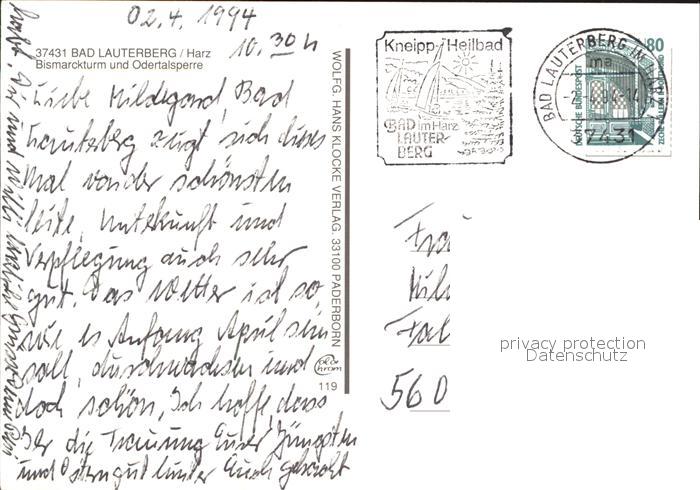 02.4.1994
10.30 h
37431 BAD LAUTERBERG / Harz
Bismarckturm und Odertalsperre
Liebe Hildegard, Bad
Lauterberg zeigt sich dieses
Mal von der schönsten
Seite, Unterkunft und
Verpflegung auch sehr
gut. Das Wetter ist so,
wie es Anfang April sein
soll, durchwachsen und
doch schön, Ich hoffe dass
Ihr die Trauung Eurer Jüngsten
und Ostern gut hinter Euch gebracht
habt.
WOLFG. HANS KLOCKE VERLAG, 33100 PADERBORN
119
Kneipp-Heilbad
BAD im Harz
LAUTER-
BERG
BAD LAUTERBERG IM
ma
7431
80
DEUTSCHE BUNDESPOST
Fra
Hil
Fal
560
privacy protection
Datenschutz